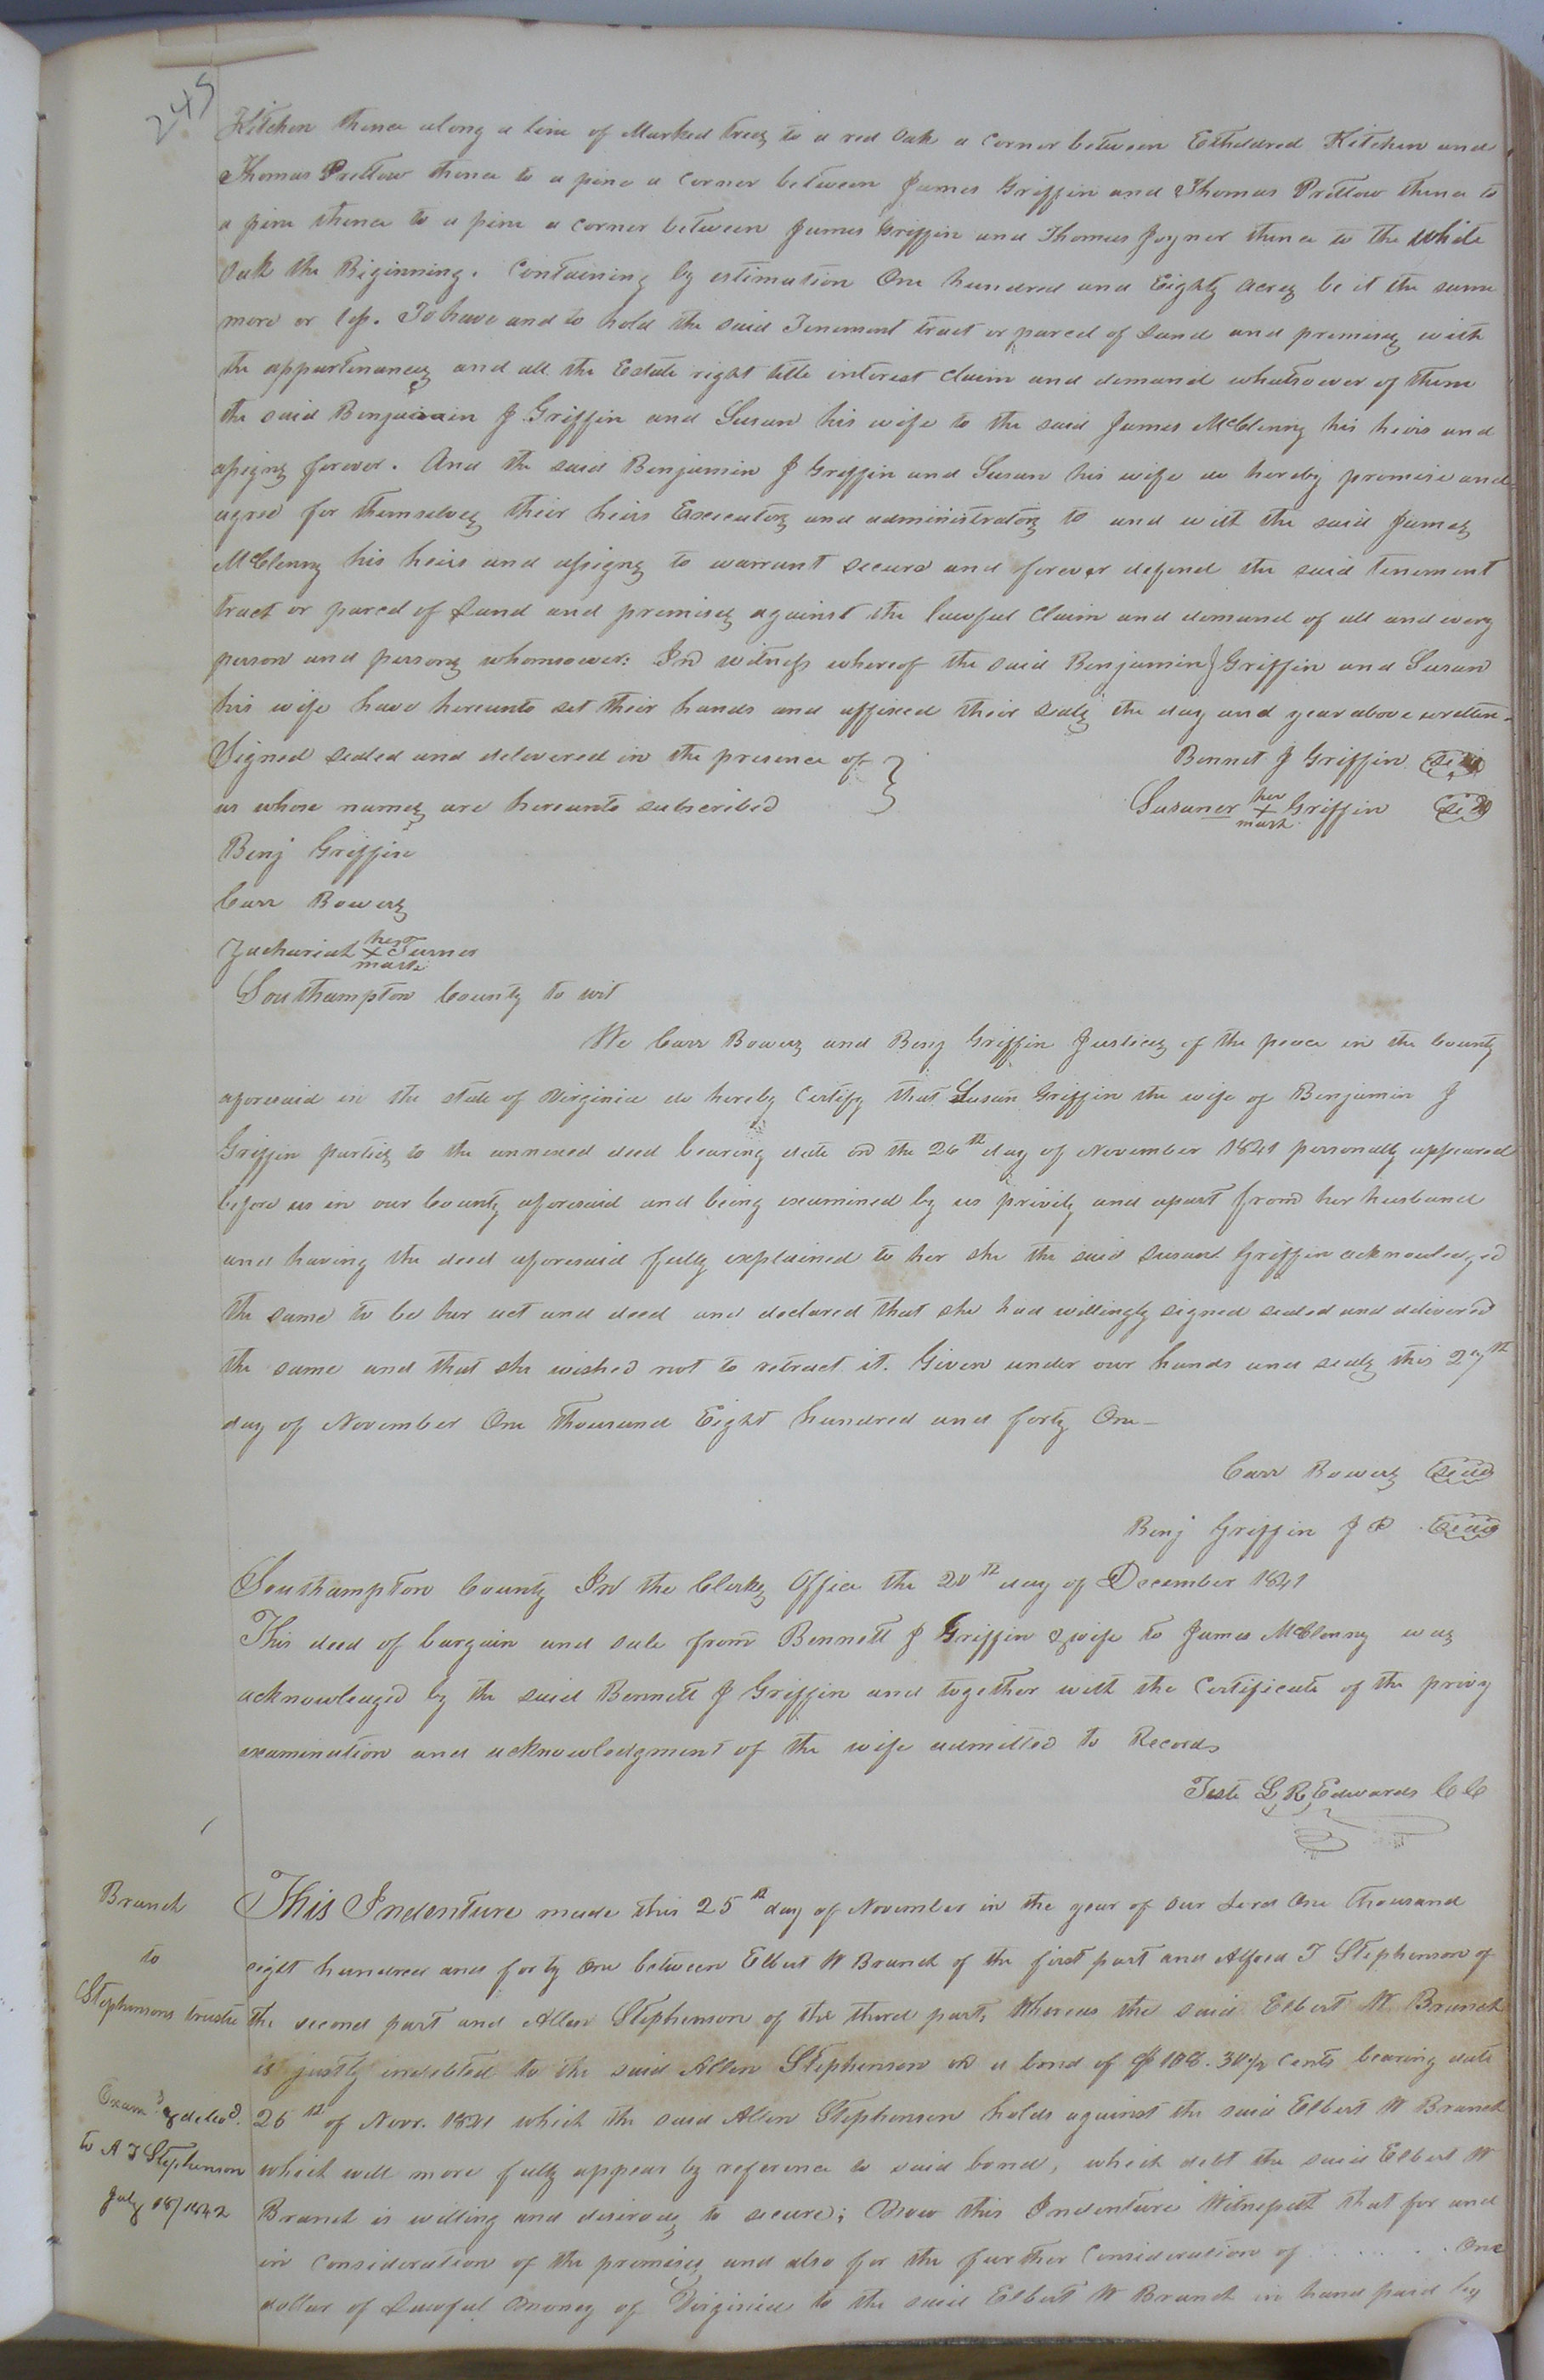 245
Kitchen thence along a line of Marked trees to a red Oak a corner between Etheldred Kitchen and
Thomas Pretlow thence to a pine a corner between James Griffin and Thomas Pretlow thence to
a pine thence to a pine a corner between James Griffin and Thomas Joyner thence to the White
Oak the Biginning. Containing by estimation One hundred and Eighty acres be it the same
more or less. To have and to hold the said Tenement tract or parcel of Land and premises with
the appurtenances and all the Estate right title interest claim and demand whatsoever of them
the said Benjamin J Griffin and Susan his wife to the said James McClenny his heirs and
assigns forever. And the said Benjamin J Griffin and Susan his wife do hereby promise and
agree for themselves their heirs Executors and administrators to and with the said James
McClenny his heirs and assigns to warrant secure and forever defend the said tenement
tract or parcel of Land and premises against the lawful claim and demand of all and every
person and persons whomsoever: In witness whereof the said Benjamin J Griffin and Susan
his wife have hereunto set their hands and affixed their seals the day and year above written.
Signed sealed and delivered in the presence of } Bennet J Griffin seal
us whose names are hereunto subscribed Susaner her X mark Griffin seal
Benj Griffin
Carr Bowers
Zachariah his X mark Turner
Southampton County to wit
We Carr Bowers and Benj Griffin Justices of the peace in the County
aforesaid in the state of Virginia do hereby Certify that Susan Griffin the wife of Benjamin J
Griffin parties to the annexed deed bearing date on the 26th day of November 1841 personally appeared
before us in our County aforesaid and being examined by us privily and apart from her husband
and having the deed aforesaid fully explained to her she the said Susan Griffin acknowledged
the same to be her act and deed and declared that she had willingly signed sealed and delivered
the same and that she wished not to retract it. Given under our hands and seals this 27th
day of November One Thousand Eight hundred and forty One—
Carr Bowers seal
Benj Griffin J P seal
Southampton County In the Clerks Office the 20th day of December 1841
This deed of bargain and sale from Bennett J Griffin & wife to James McClenny was
acknowledged by the said Bennett J Griffin and together with the Certificate of the privy
examination and acknowledgment of the wife admitted to Records
Teste L R Edwards C C
Branch
to
Stephensons trustee
Exam.d & deled.
to A T Stephenson
July 18/1842
This Indenture made this 25th day of November in the year of our Lord One Thousand
eight hundred and forty One between Elbert W Branch of the first part and Alfred T Stephenson of
the second part and Allen Stephenson of the third part, Whereas the said Elbert W Branch
is justly indebted to the said Allen Stephenson on a bond of $108.30½ Cents bearing date
26th of Novr. 1841 which the said Allen Stephenson holds against the said Elbert W Branch
which will more fully appear by reference to said bond, which debt the said Elbert W
Branch is willing and desirous to secure; Now this Indenture Witnesseth that for and
in Consideration of the premises and also for the further Consideration of . . . . . . One
dollar of Lawful Money of Virginia to the said Elbert W Branch in hand paid by